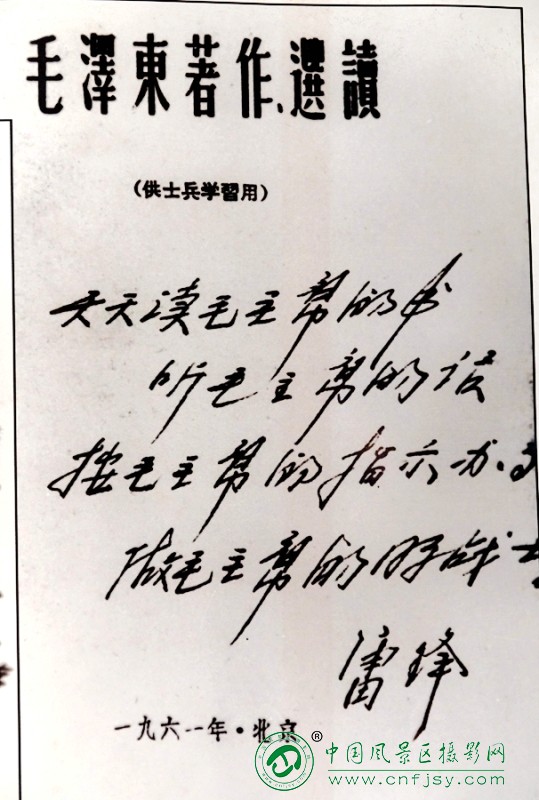 毛澤東著作選讀
(供士兵学習用)
天天读毛主席的书
听毛主席的话
按毛主席的指示办事
做毛主席的好战士
雷锋
一九六一年·北京
® 中国风景区摄影网
www.cnfjsy.com